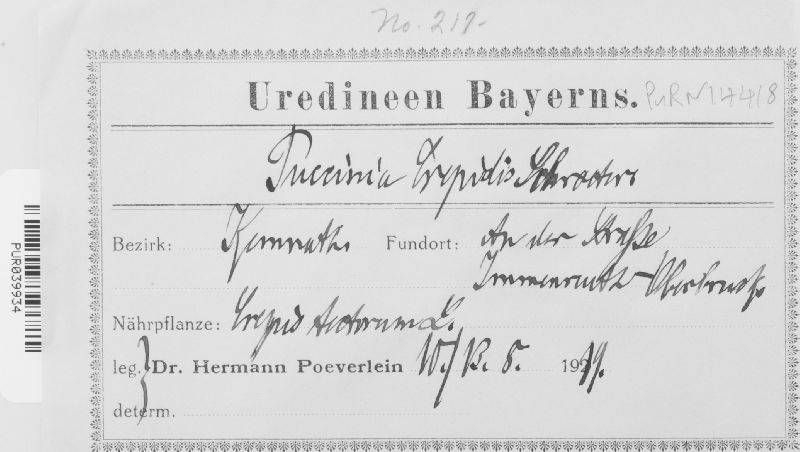 No. 217-
Uredineen Bayerns. PUR N17418
Puccinia Crepidis Schroeter.
Bezirk: Kemnath. Fundort: An der Straße
Immenreuth-
Nährpflanze: Crepis tectorum L.
leg. Dr. Hermann Poeverlein 10./13. 8. 19
determ.
PUR039934